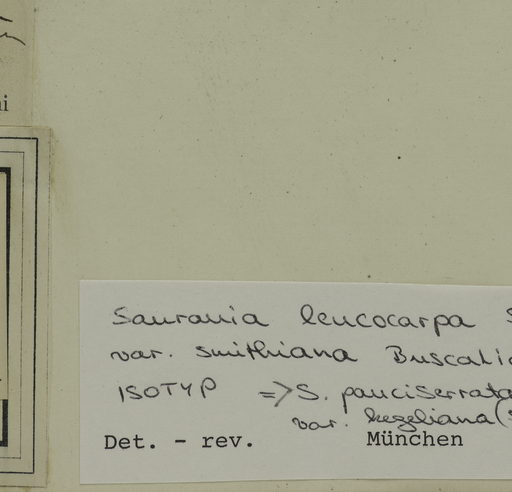 Saurauia leucocarpa S
var. smithiana Buscali
ISOTYP => S. pauciserrata
var. kegeliana (
Det. - rev. München